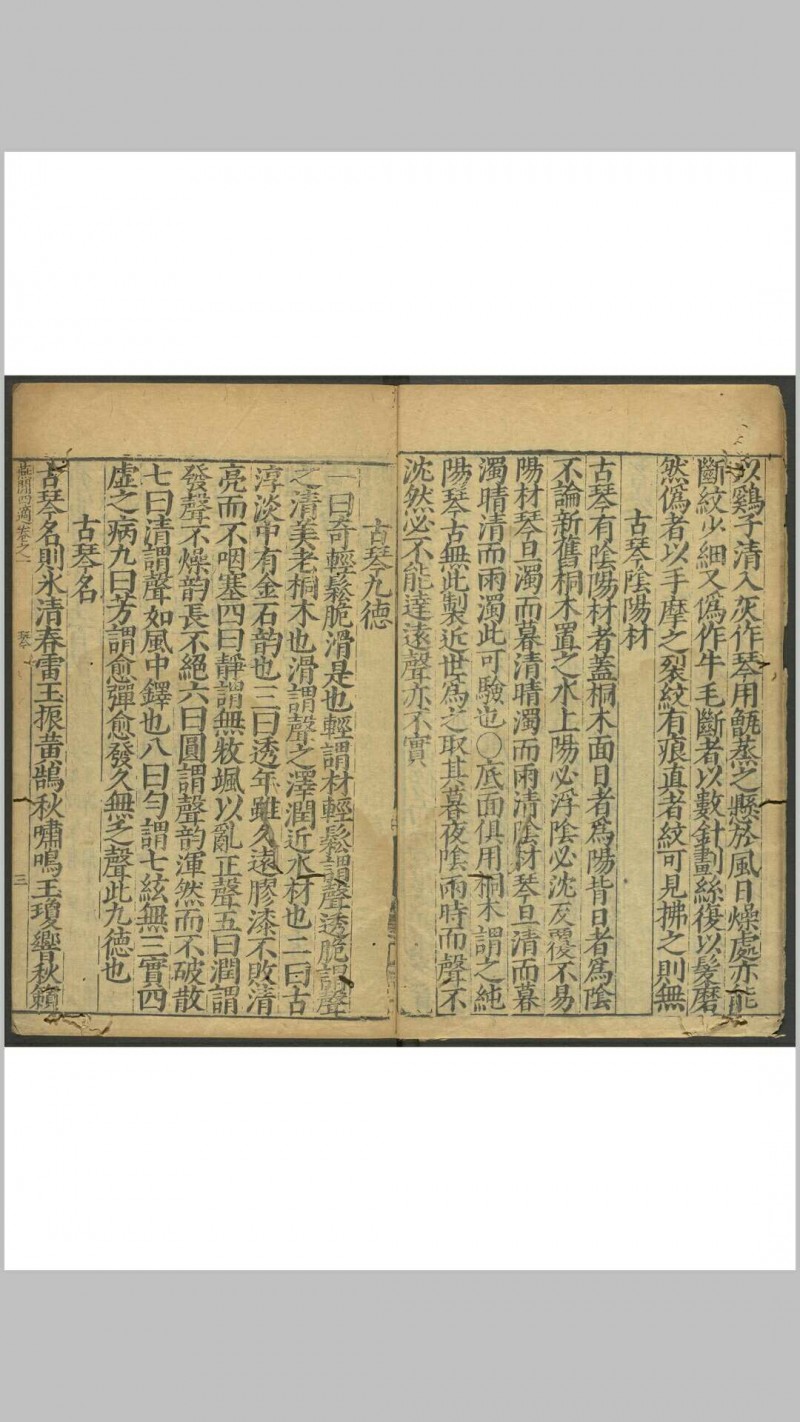 以鷄子清入灰作琴用甑蒸之懸於風日燥處亦能
斷紋少細又偽作牛毛斷者以數針劃絲復以髮磨
然偽者以手摩之裂紋有痕真者紋可見拂之則無
古琴陰陽材
古琴有陰陽材者蓋桐木面日者爲陽背日者爲陰
不論新舊桐木置之水上陽必浮陰必沈反覆不易
陽材琴旦濁而暮清晴濁而雨清陰材琴旦清而暮
濁晴清而雨濁此可驗也〇底面俱用桐木謂之純
陽琴古無此製近世爲之取其暮夜陰雨時而聲不
沈然必不能達遠聲亦不實
古琴九德
一曰奇輕鬆脆滑是也輕謂材輕鬆謂聲透脆謂聲
之清美老桐木也滑謂聲之澤潤近水材也二曰古
淳淡中有金石韵也三曰透年雖久遠膠漆不敗清
亮而不咽塞四曰靜謂無敉颯以亂正聲五曰潤謂
發聲不燥韵長不絕六曰圓謂聲韵渾然而不破散
七曰清謂聲如風中鐸也八曰勻謂七絃無三實四
虛之病九曰芳謂愈彈愈發久無乏聲此九德也
古琴名
古琴名則氷清春雷玉振黄鵠秋嘯鳴玉瓊響秋籟
燕閒四適卷之一 琴 三